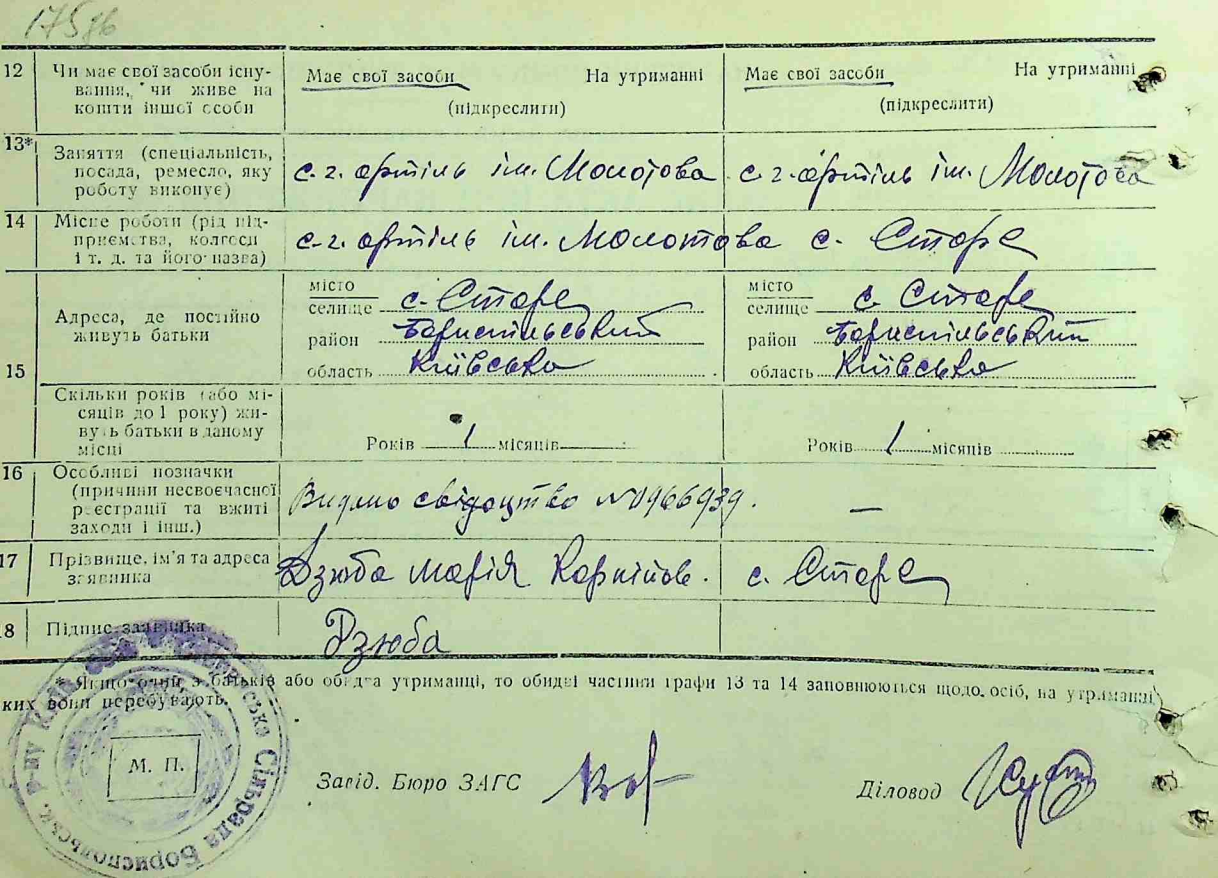 175зв
12 Чи має свої засоби існу-
вання, чи живе на
кошти іншої особи
Має свої засоби На утриманні Має свої засоби На утриманні
(підкреслити) (підкреслити)
13* Заняття (спеціальність,
посада, ремесло, яку
роботу виконує)
с. г. артіль ім. Молотова с. г. артіль ім. Молотова
14 Місце роботи (рід під-
приємства, колгосп
і т. д. та його назва)
с. г. артіль ім. Молотова с. Старе
15 Адреса, де постійно
живуть батьки
місто
селище с. Старе
район Бориспільський
область Київська
місто
селище с. Старе
район Бориспільський
область Київська
Скільки років (або мі-
сяців до 1 року) жи-
вуть батьки в даному
місці
Років 1 місяців Років 1 місяців
16 Особливі позначки
(причини несвоєчасної
реєстрації та вжиті
заходи і інш.)
Видано свідоцтво №0966939. —
17 Прізвище, ім'я та адреса
заявника
Дзюба Марія Карпівн. с. Старе
18 Підпис заявника
Дзюба
* Якщо один з батьків або обидва утриманці, то обидві частини графи 13 та 14 заповнюються щодо осіб, на утриманні
яких вони перебувають.
М. П.
Завід. Бюро ЗАГС
Діловод
Сільрада Бориспольськ. р-ну Київ.